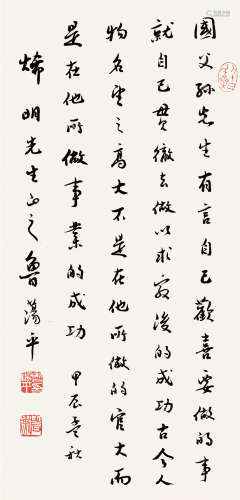 國父孫先生有言自己歡喜要做的事
就自己貫徹去做以求最後的成功古今人
物名望之高大不是在他所做的官大而
是在他所做事業的成功 甲辰孟秋
烯明先生正之 魯蕩平